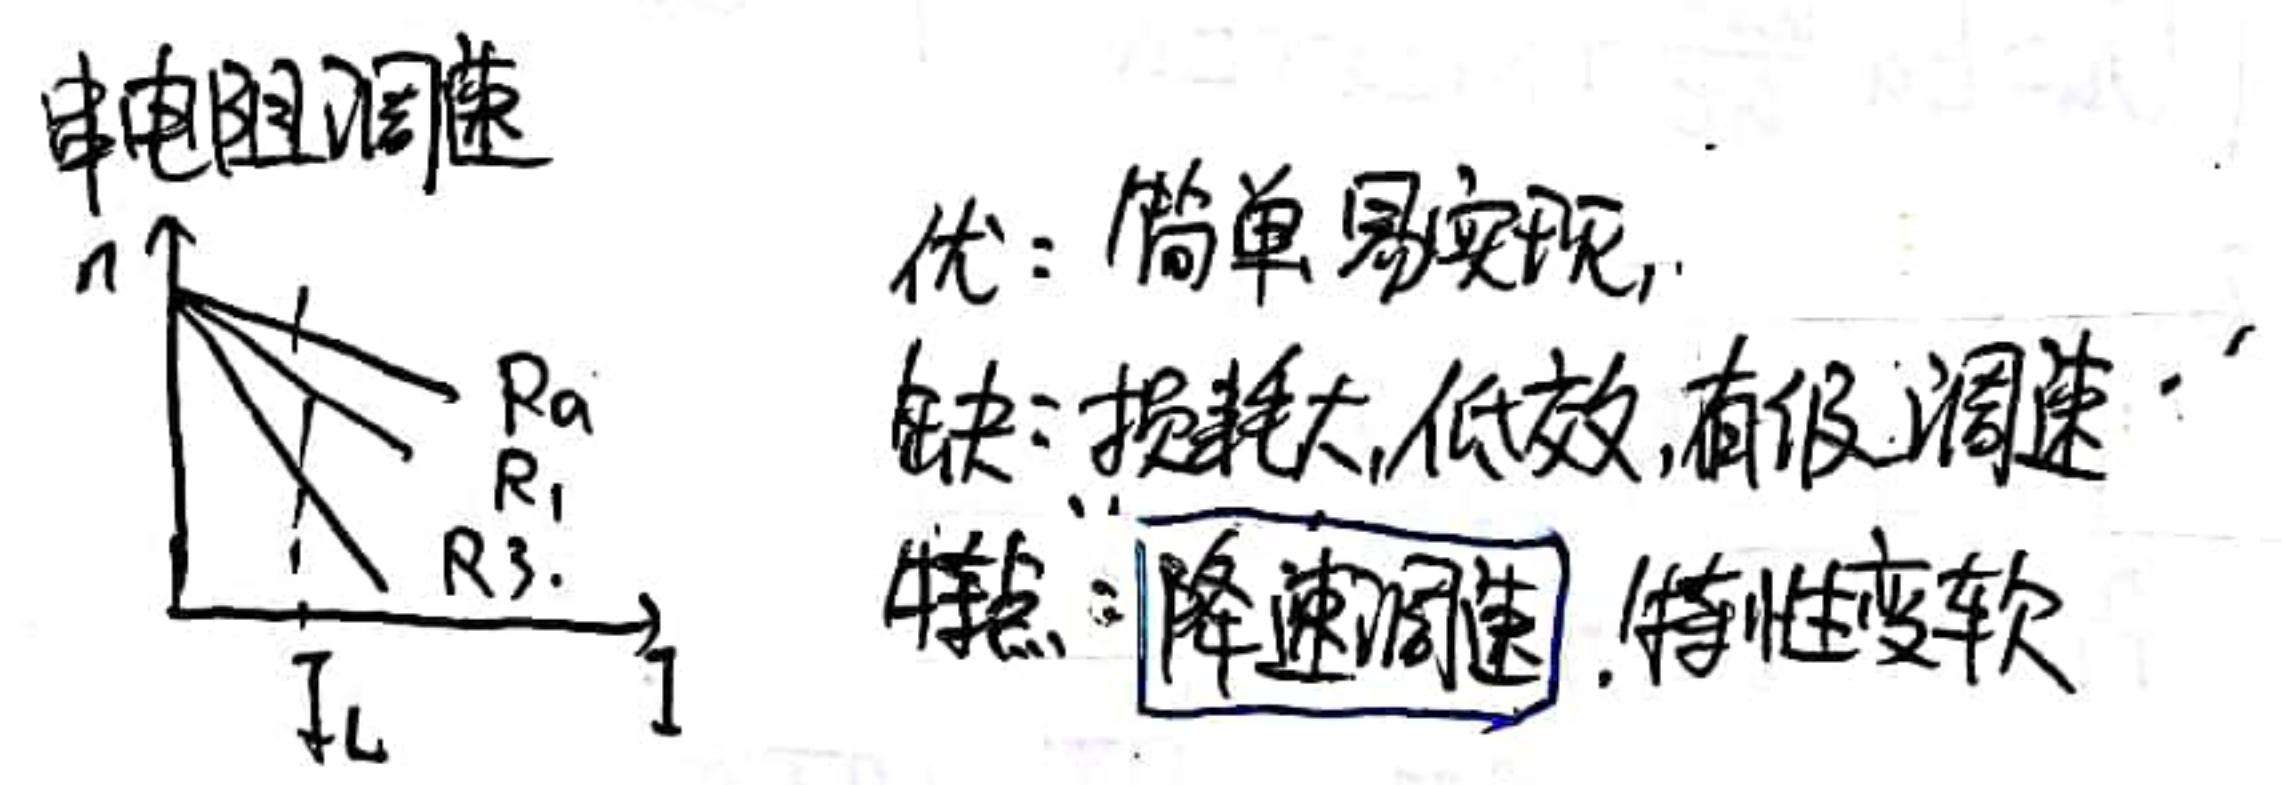 串电阻调速
n
Ra
R1
R3.
I
IL
优：简单易实现，
缺：损耗大，低效，有级调速
特点：降速调速．特性变软